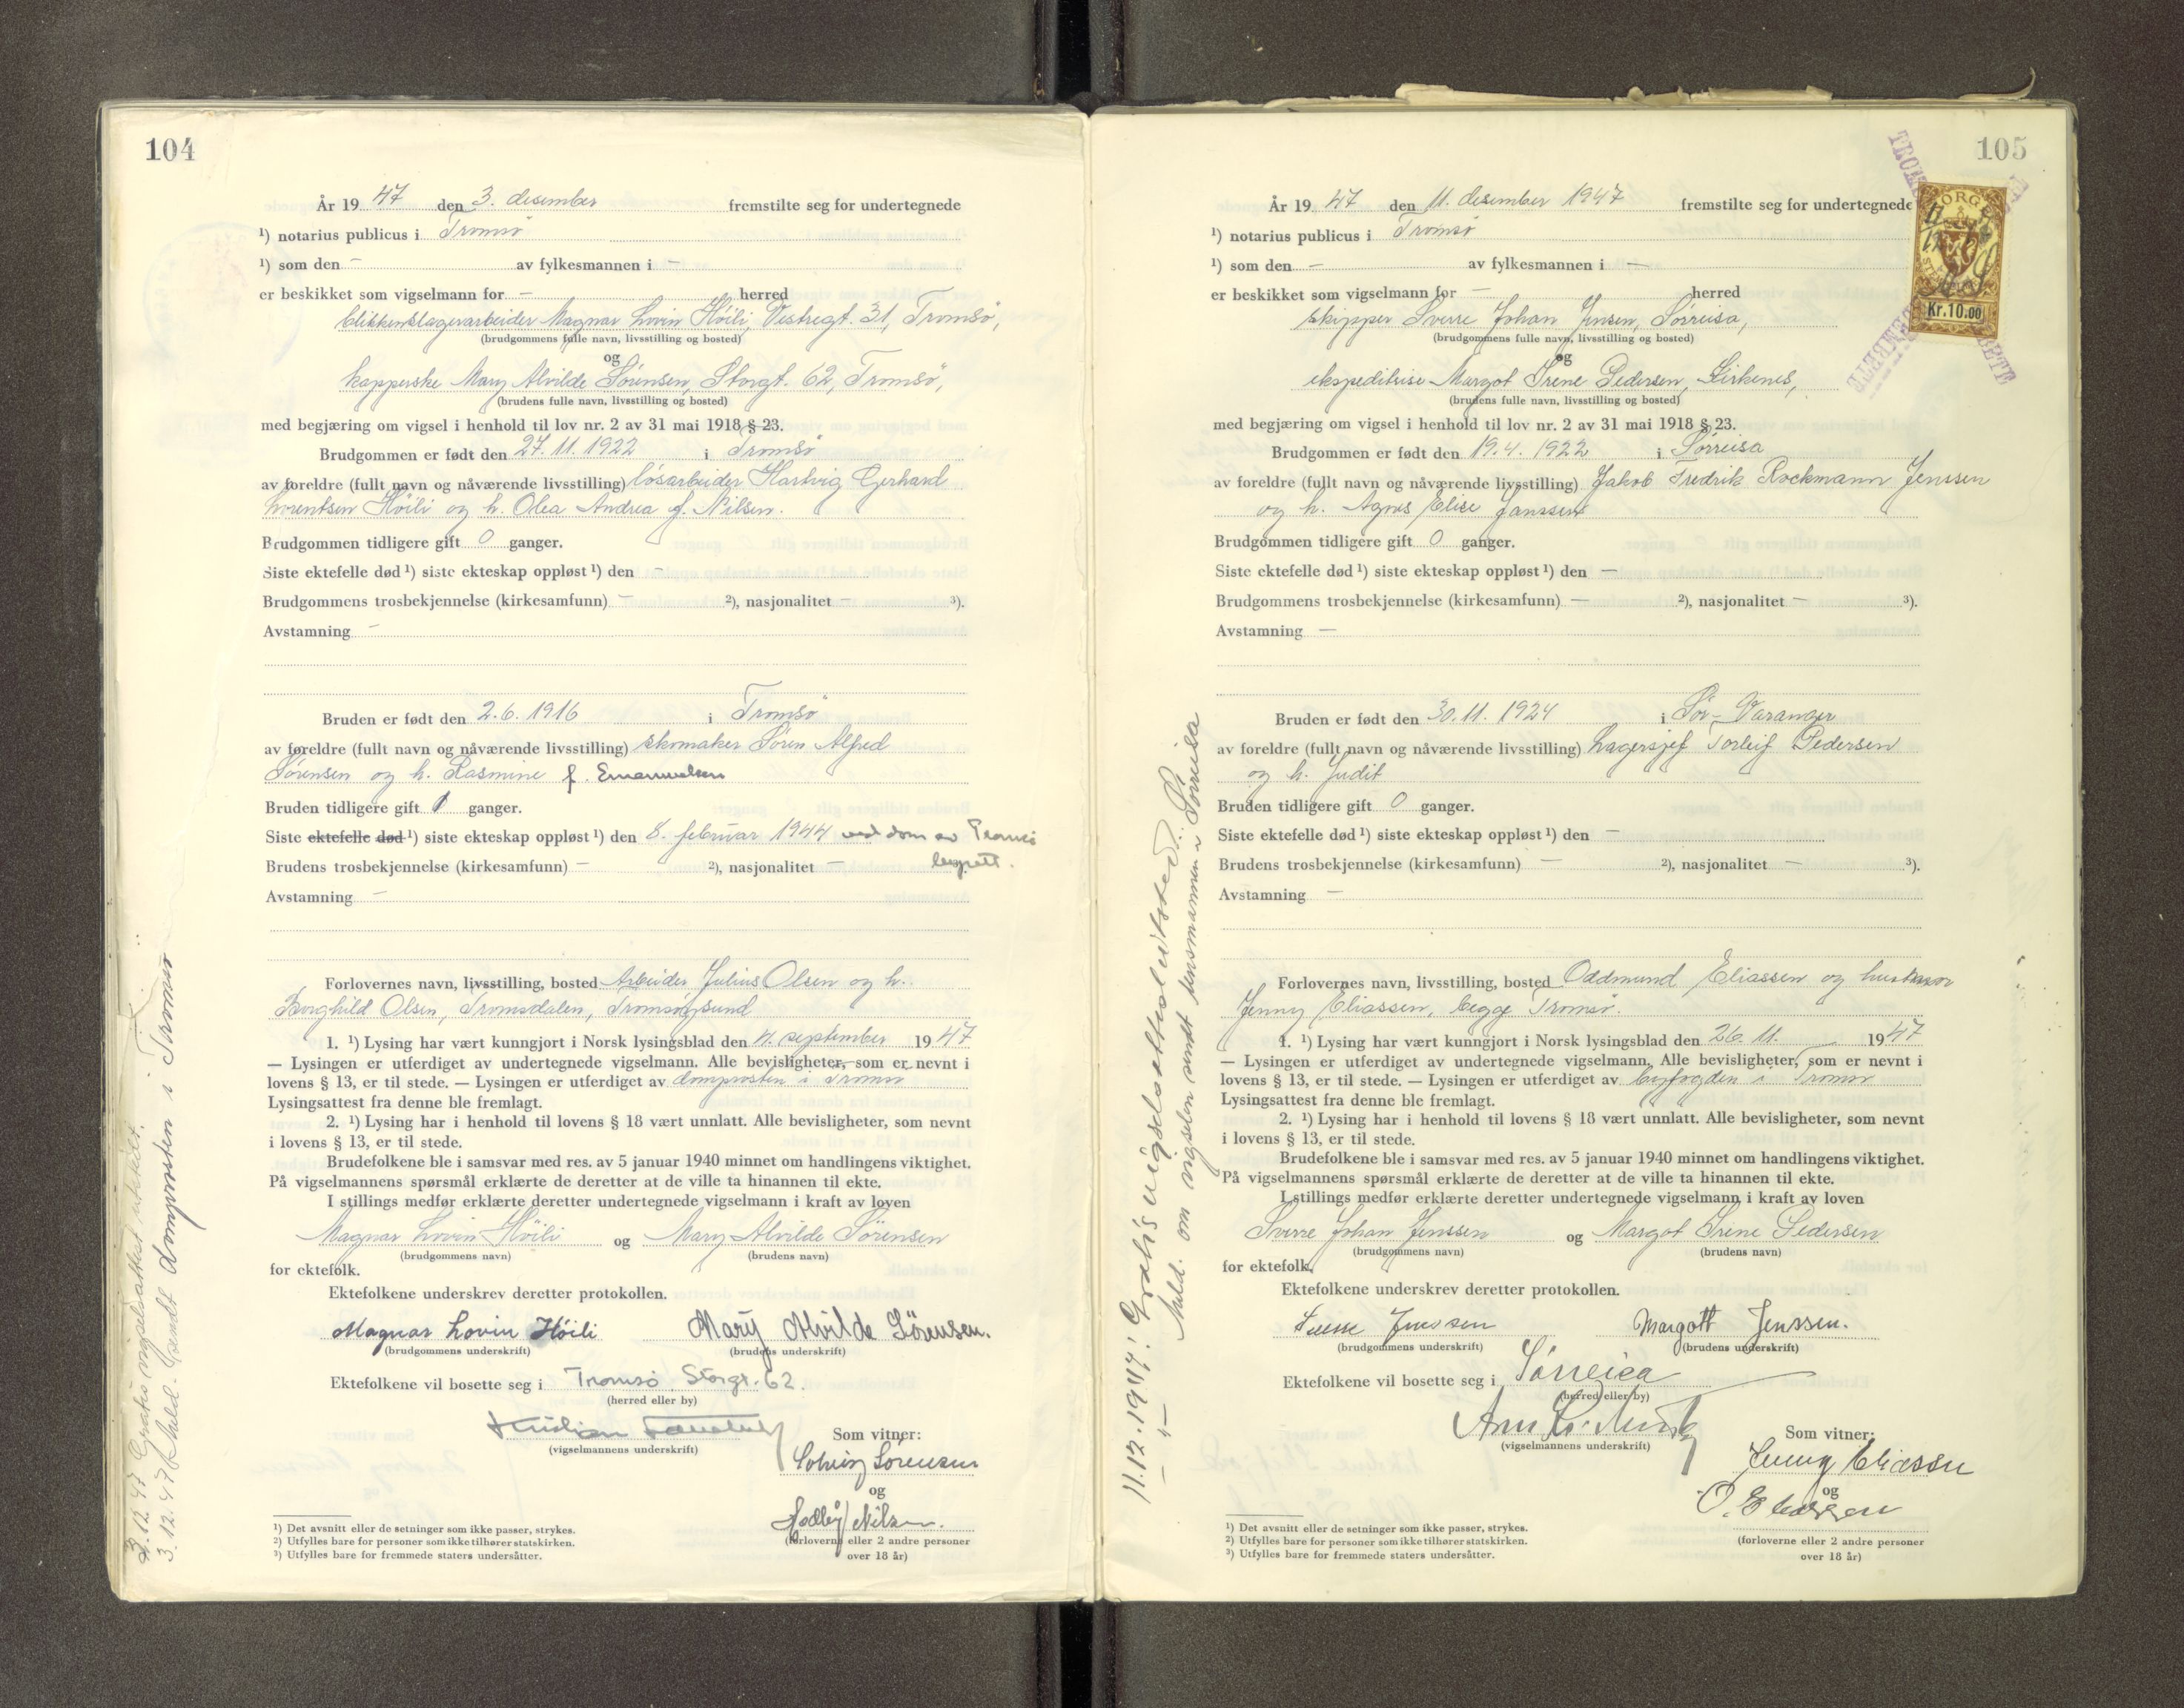 104
År 19 47 den 3. desember fremstilte seg for undertegnede
¹) notarius publicus i Tromsø
¹) som den – av fylkesmannen i –
er beskikket som vigselmann for – herred
blikkenslagerarbeider Magnar Lovin Høili, Vestregt. 31, Tromsø,
(brudgommens fulle navn, livsstilling og bosted)
og
kapperske Mary Alvilde Sørensen, Storgt. 62, Tromsø,
(brudens fulle navn, livsstilling og bosted)
med begjæring om vigsel i henhold til lov nr. 2 av 31 mai 1918 § 23.
Brudgommen er født den 27.11.1922 i Tromsø
av foreldre (fullt navn og nåværende livsstilling) løsarbeider Hartvig Gerhard
Lorentsen Høili og h. Olea Andrea f. Nilsen.
Brudgommen tidligere gift 0 ganger.
Siste ektefelle død ¹) siste ekteskap oppløst ¹) den –
Brudgommens trosbekjennelse (kirkesamfunn) – ²), nasjonalitet – ³).
Avstamning –
Bruden er født den 2.6.1916 i Tromsø
av foreldre (fullt navn og nåværende livsstilling) skomaker Søren Alfred
Sørensen og h. Rasmine f. Emanuelsen
Bruden tidligere gift 1 ganger.
Siste ektefelle død ¹) siste ekteskap oppløst ¹) den 8. februar 1944 ved dom av Tromsø
byrett.
Brudens trosbekjennelse (kirkesamfunn) – ²), nasjonalitet –
Avstamning –
Forlovernes navn, livsstilling, bosted Arbeider Julius Olsen og h.
Borghild Olsen, Tromsdalen, Tromsøysund
1. ¹) Lysing har vært kunngjort i Norsk lysingsblad den 4. september 19 47
— Lysingen er utferdiget av undertegnede vigselmann. Alle bevisligheter, som er nevnt i
lovens § 13, er til stede. — Lysingen er utferdiget av domprosten i Tromsø
Lysingsattest fra denne ble fremlagt.
2. ¹) Lysing har i henhold til lovens § 18 vært unnlatt. Alle bevisligheter, som nevnt
i lovens § 13, er til stede.
Brudefolkene ble i samsvar med res. av 5 januar 1940 minnet om handlingens viktighet.
På vigselmannens spørsmål erklærte de deretter at de ville ta hinannen til ekte.
I stillings medfør erklærte deretter undertegnede vigselmann i kraft av loven
Magnar Lovin Høili og Mary Alvilde Sørensen
(brudgommens navn) (brudens navn)
for ektefolk.
Ektefolkene underskrev deretter protokollen.
Magnar Lovin Høili Mary Alvilde Sörensen.
(brudgommens underskrift) (brudens underskrift)
Ektefolkene vil bosette seg i Tromsø Storgt. 62.
(herred eller by)
Kristian
(vigselmannens underskrift)
Som vitner:
Solveig Sørensen
og
Nilsen.
(forloverne eller 2 andre personer
over 18 år)
¹) Det avsnitt eller de setninger som ikke passer, strykes.
²) Utfylles bare for personer som ikke tilhører statskirken.
³) Utfylles bare for fremmede staters undersåtter.
3.12.47 Gratis vigselsattest utstedt.
3.12.47 Meld. sendt domprosten i Tromsø
105
År 19 47 den 11. desember 1947 fremstilte seg for undertegnede
¹) notarius publicus i Tromsø
¹) som den – av fylkesmannen i –
er beskikket som vigselmann for – herred
skipper Sverre Johan Jensen, Sørreisa,
(brudgommens fulle navn, livsstilling og bosted)
og
ekspeditrise Margot Irene Pedersen, Kirkenes,
(brudens fulle navn, livsstilling og bosted)
med begjæring om vigsel i henhold til lov nr. 2 av 31 mai 1918 § 23.
Brudgommen er født den 19.4.1922 i Sørreisa
av foreldre (fullt navn og nåværende livsstilling) Jakob Fredrik Rockmann Jenssen
og h. Agnes Elise Janssen
Brudgommen tidligere gift 0 ganger.
Siste ektefelle død ¹) siste ekteskap oppløst ¹) den –
Brudgommens trosbekjennelse (kirkesamfunn) – ²), nasjonalitet – ³).
Avstamning –
Bruden er født den 30.11.1924 i Sør-Varanger
av foreldre (fullt navn og nåværende livsstilling) Lagersjef Torleif Pedersen
og h. Judit
Bruden tidligere gift 0 ganger.
Siste ektefelle død ¹) siste ekteskap oppløst ¹) den –
Brudens trosbekjennelse (kirkesamfunn) – ²), nasjonalitet – ³).
Avstamning –
Forlovernes navn, livsstilling, bosted Oddmund Eliassen og hustru
Jenny Eliassen, begge Tromsø.
1. ¹) Lysing har vært kunngjort i Norsk lysingsblad den 26.11. 19 47
— Lysingen er utferdiget av undertegnede vigselmann. Alle bevisligheter, som er nevnt i
lovens § 13, er til stede. — Lysingen er utferdiget av byfogden i Tromsø
Lysingsattest fra denne ble fremlagt.
2. ¹) Lysing har i henhold til lovens § 18 vært unnlatt. Alle bevisligheter, som nevnt
i lovens § 13, er til stede.
Brudefolkene ble i samsvar med res. av 5 januar 1940 minnet om handlingens viktighet.
På vigselmannens spørsmål erklærte de deretter at de ville ta hinannen til ekte.
I stillings medfør erklærte deretter undertegnede vigselmann i kraft av loven
Sverre Johan Jenssen og Margot Irene Pedersen
(brudgommens navn) (brudens navn)
for ektefolk.
Ektefolkene underskrev deretter protokollen.
Sverre Jenssen Margott Jenssen.
(brudgommens underskrift) (brudens underskrift)
Ektefolkene vil bosette seg i Sørreisa
(herred eller by)
(vigselmannens underskrift)
Som vitner:
Jenny Eliassen
og
O. Eliassen
(forloverne eller 2 andre personer
over 18 år)
¹) Det avsnitt eller de setninger som ikke passer, strykes.
²) Utfylles bare for personer som ikke tilhører statskirken.
³) Utfylles bare for fremmede staters undersåtter.
11.12.1947: Gratis vigselsattest utstedt.
– " – Meld. om vigselen sendt lensmannen i Sørreisa
NORGE
Kr. 10.00